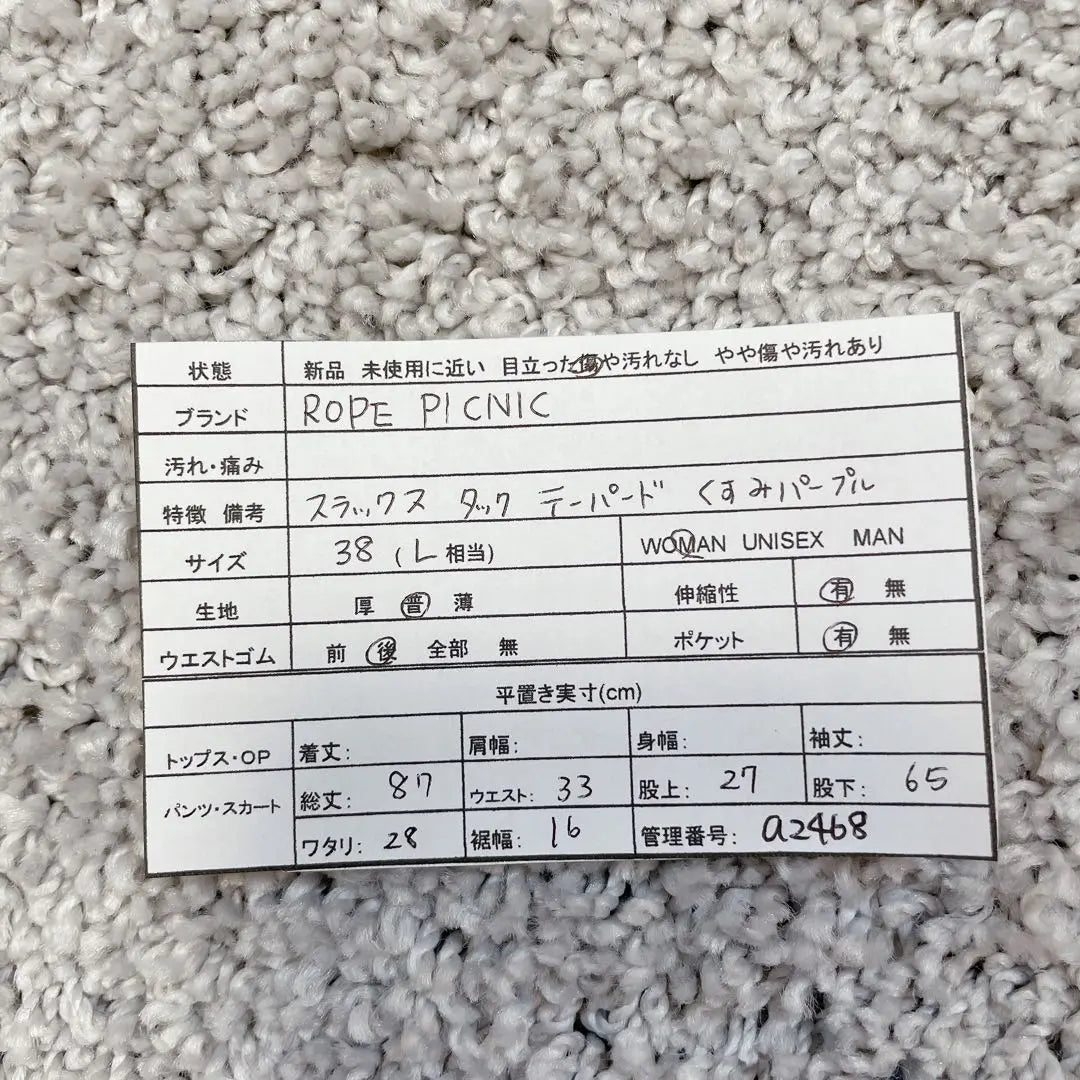 状態 新品 未使用に近い 目立った傷や汚れなし やや傷や汚れあり
ブランド ROPE PICNIC
汚れ・痛み
特徴 備考 スラックス タック テーパード くすみパープル
サイズ 38 (L 相当) WOMAN UNISEX MAN
生地 厚 普 薄 伸縮性 有 無
ウエストゴム 前 後 全部 無 ポケット 有 無
平置き実寸(cm)
トップス・OP 着丈: 肩幅: 身幅: 袖丈:
パンツ・スカート 総丈: 87 ウエスト: 33 股上: 27 股下: 65
ワタリ: 28 裾幅: 16 管理番号: a2468